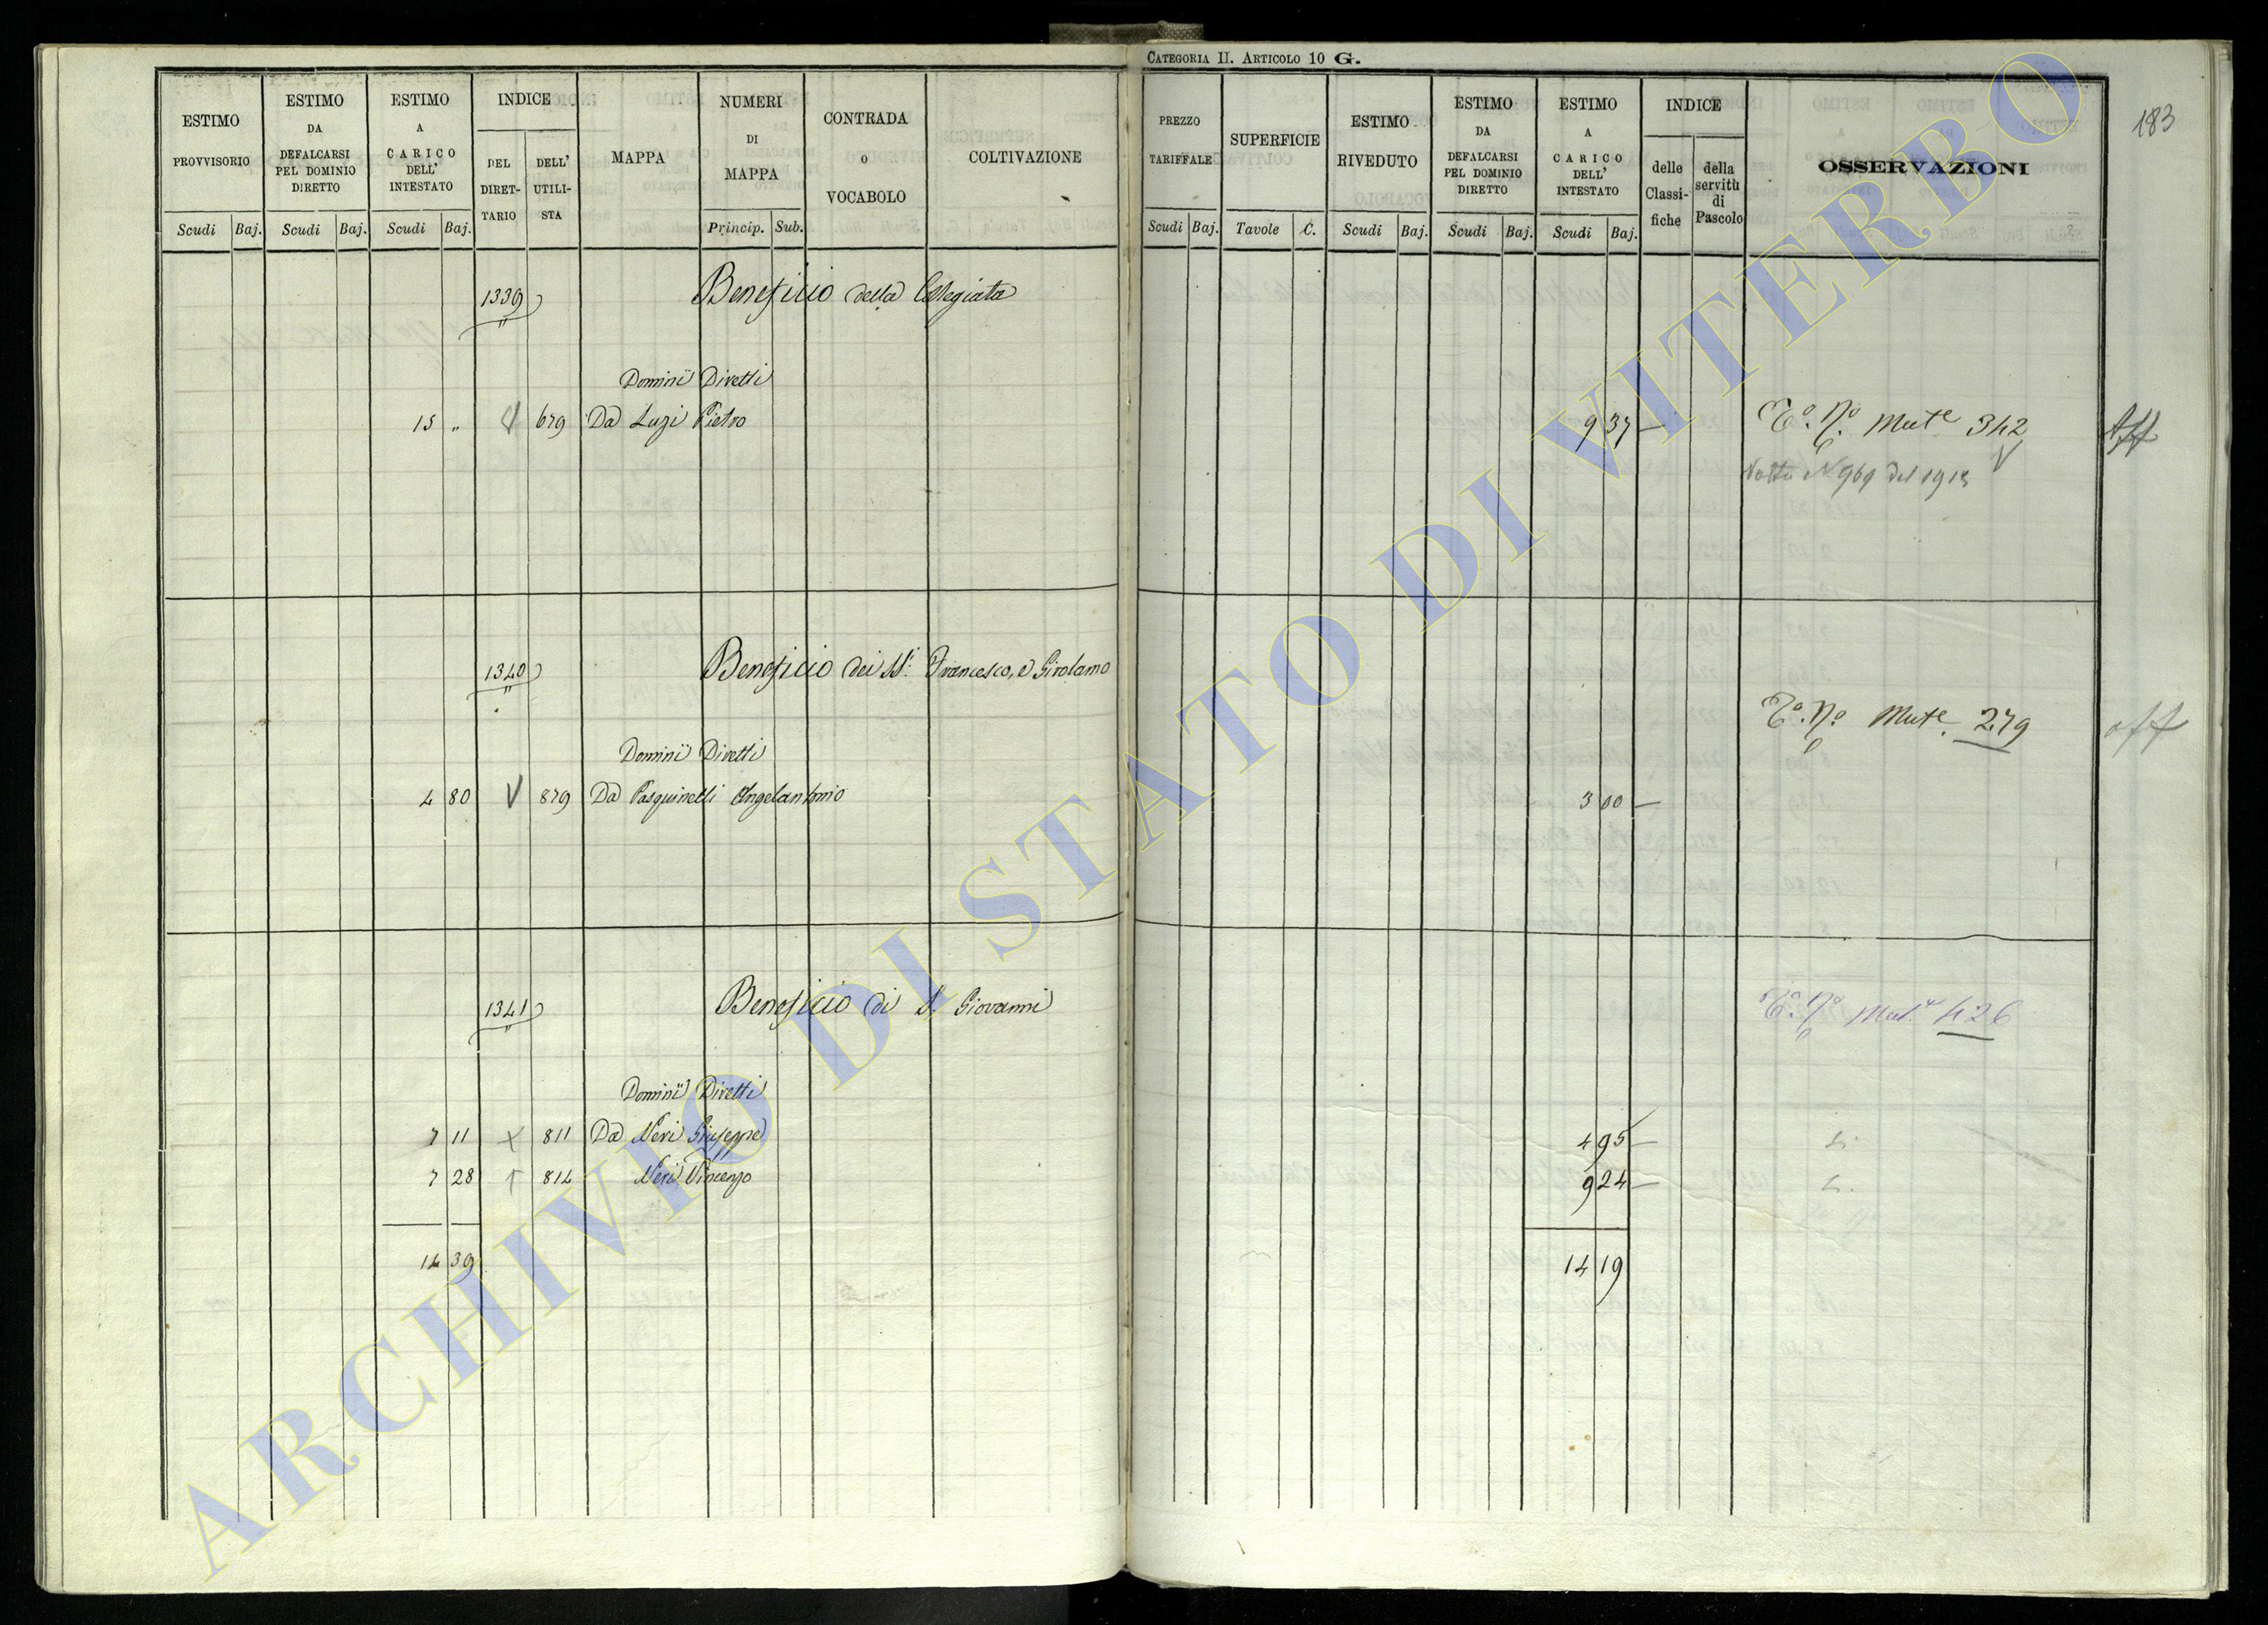 CATEGORIA II. ARTICOLO 10 G.
183
ESTIMO PROVVISORIO
ESTIMO DA DEFALCARSI PEL DOMINIO DIRETTO
ESTIMO A CARICO DELL' INTESTATO
INDICE
DEL DIRETTARIO
DELL' UTILISTA
MAPPA
NUMERI DI MAPPA
CONTRADA O VOCABOLO
COLTIVAZIONE
Scudi Baj. Scudi Baj. Scudi Baj. Princip. Sub.
PREZZO TARIFFALE
SUPERFICIE
ESTIMO RIVEDUTO
ESTIMO DA DEFALCARSI PEL DOMINIO DIRETTO
ESTIMO A CARICO DELL' INTESTATO
INDICE
delle Classifiche
della servitù di Pascolo
OSSERVAZIONI
Scudi Baj. Tavole C. Scudi Baj. Scudi Baj. Scudi Baj.
1339 Beneficio della Collegiata
Dominii Diretti
15 " 679 Da Luzi Pietro 9 37 — Mute 342
N 969 del 1913
1340 Beneficio dei SS. Francesco, e Girolamo
Mute 279 off
Dominii Diretti
4 80 V 879 Da Pasquinelli Angelantonio 3 00 —
1341 Beneficio di S. Giovanni Mut. 426
Dominii Diretti
7 11 811 Da Neri Giuseppe 4 95 —
7 28 814 Neri Vincenzo 9 24 —
14 39 14 19
ARCHIVIO DI STATO DI VITERBO